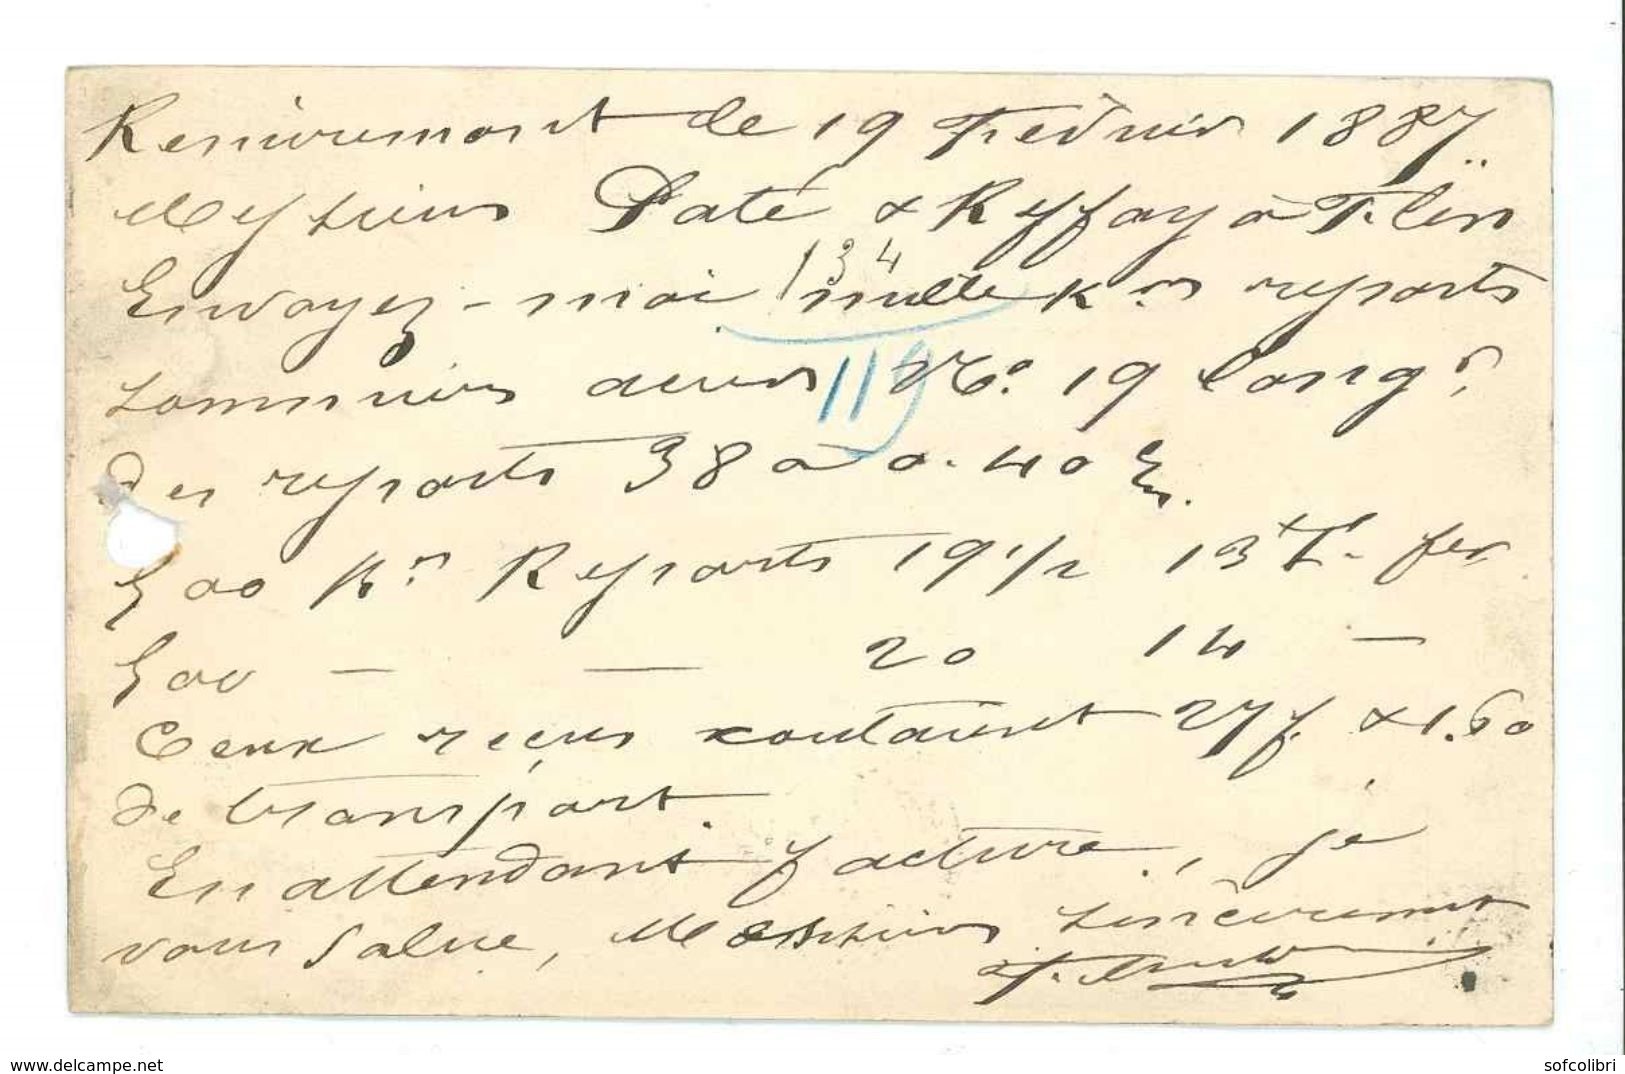 Remiremont le 19 Février 1887
Messieurs Paté & Keffay à Flin
134
Envoyez-moi mille Kos ressorts
sommiers acier No. 19 longr
119
des ressorts 38 à 0.40 c.
500 Kos Ressorts 19 1/2 13t fer
500 — — 20 14 —
Ceux reçus coutaient 27 f. & 1.60
de transport.
En attendant facture, je
vous salue, Messieurs sincèrement
delcampe.net
sofcolibri